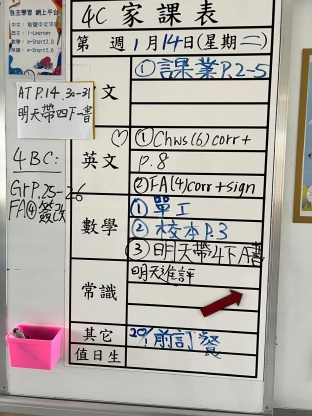 自主學習 網上平台
4C 家課表
第 週 1月14日(星期二)
AT P.14, 30-31
明天帶四下一書
文
①課業P.2-5
4BC:
GrP.25-26
FA④簽改
英文
①Chws(6)corr+
P.8
②FA(4)corr+sign
數學
①單工
②校本P.3
③明天帶4下A書
常識
明天進評
其它
20/1前訂餐
值日生